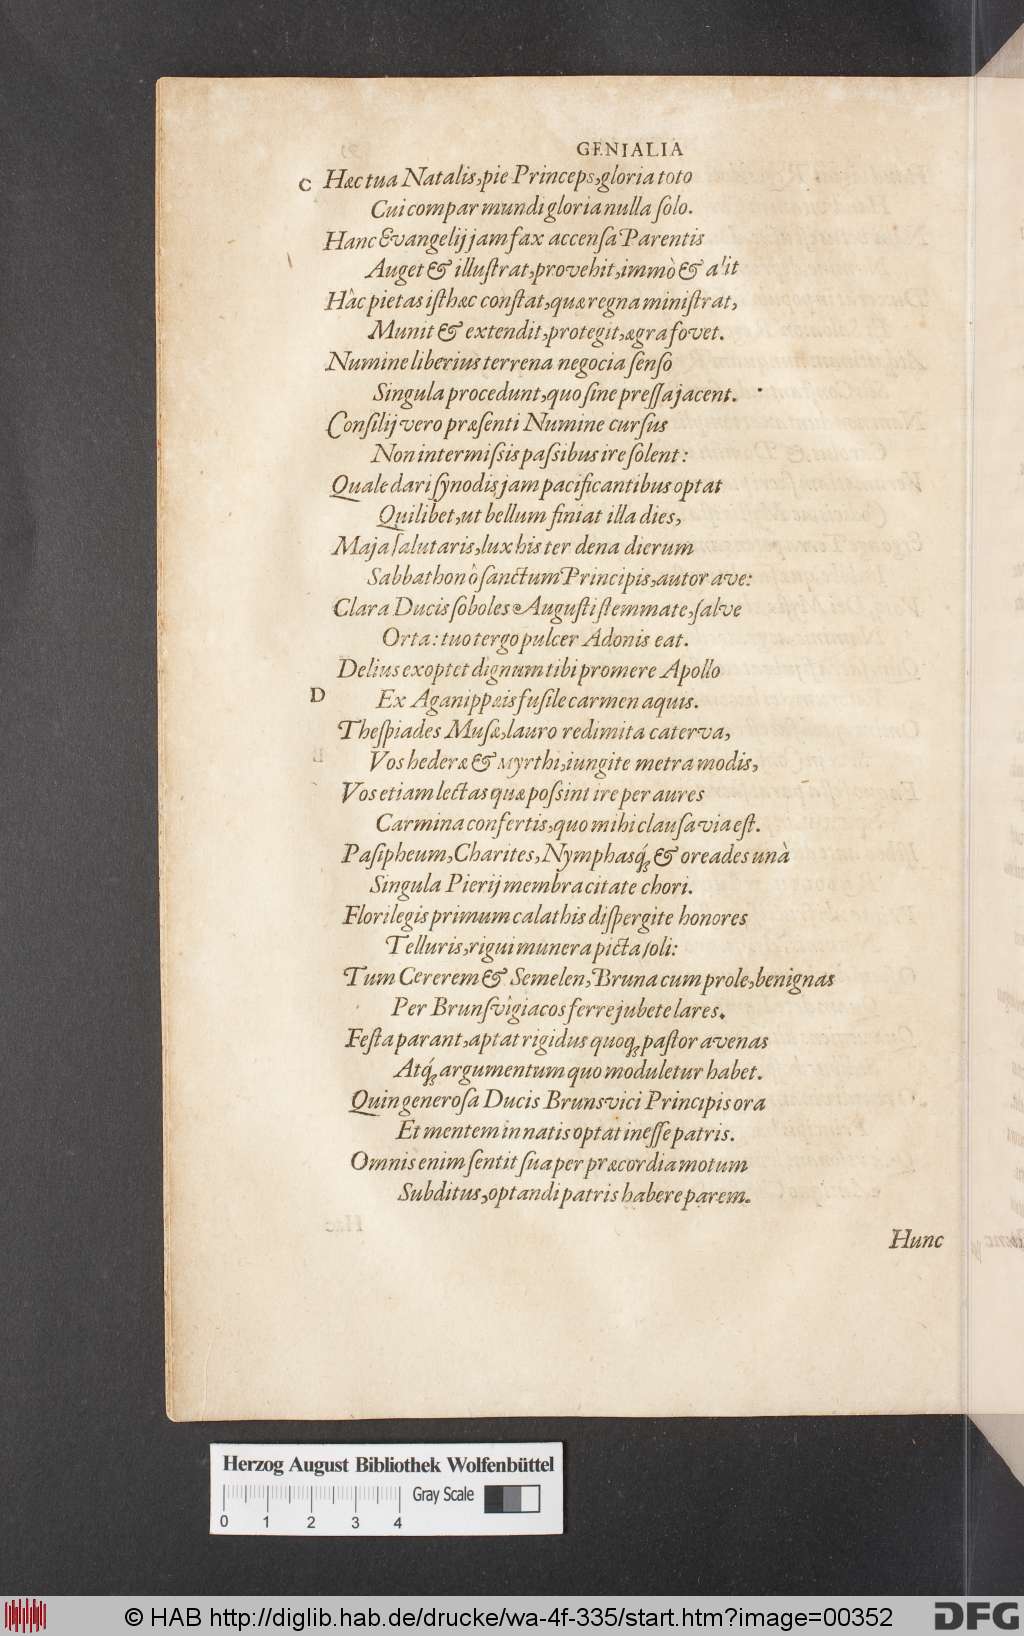 GENIALIA
C Hæc tua Natalis, pie Princeps, gloria toto
Cui compar mundi gloria nulla ſolo.
Hanc Evangelij jam fax accenſa Parentis
Auget & illuſtrat, provehit, immò & alit
Hâc pietas iſthæc conſtat, quæ regna miniſtrat,
Munit & extendit, protegit, ægra fovet.
Numine liberius terrena negocia ſenſo
Singula procedunt, quo ſine preſſa jacent.
Conſilij vero præſenti Numine curſus
Non intermiſsis paſsibus ire ſolent:
Quale dari ſynodis jam pacificantibus optat
Quilibet, ut bellum finiat illa dies,
Maja ſalutaris, lux his ter dena dierum
Sabbathon ô ſanctum Principis, autor ave:
Clara Ducis ſoboles Auguſti ſtemmate, ſalve
Orta: tuo tergo pulcer Adonis eat.
Delius exoptet dignum tibi promere Apollo
D Ex Aganippæis fuſile carmen aquis.
Theſpiades Muſæ, lauro redimita caterva,
Vos hederæ & Myrthi, iungite metra modis,
Vos etiam lectas quæ poſsint ire per aures
Carmina confertis, quo mihi clauſa via eſt.
Paſipheum, Charites, Nymphasq́; & oreades unà
Singula Pierij membra citate chori.
Florilegis primum calathis diſpergite honores
Telluris, rigui munera picta ſoli:
Tum Cererem & Semelen, Bruna cum prole, benignas
Per Brunſvigiacos ferre jubete lares.
Feſta parant, aptat rigidus quoq; paſtor avenas
Atq́; argumentum quo moduletur habet.
Quin generoſa Ducis Brunsvici Principis ora
Et mentem in natis optat ineſſe patris.
Omnis enim ſentit ſua per præcordia motum
Subditus, optandi patris habere parem.
Hunc
Herzog August Bibliothek Wolfenbüttel
Gray Scale
0 1 2 3 4
© HAB http://diglib.hab.de/drucke/wa-4f-335/start.htm?image=00352
DFG